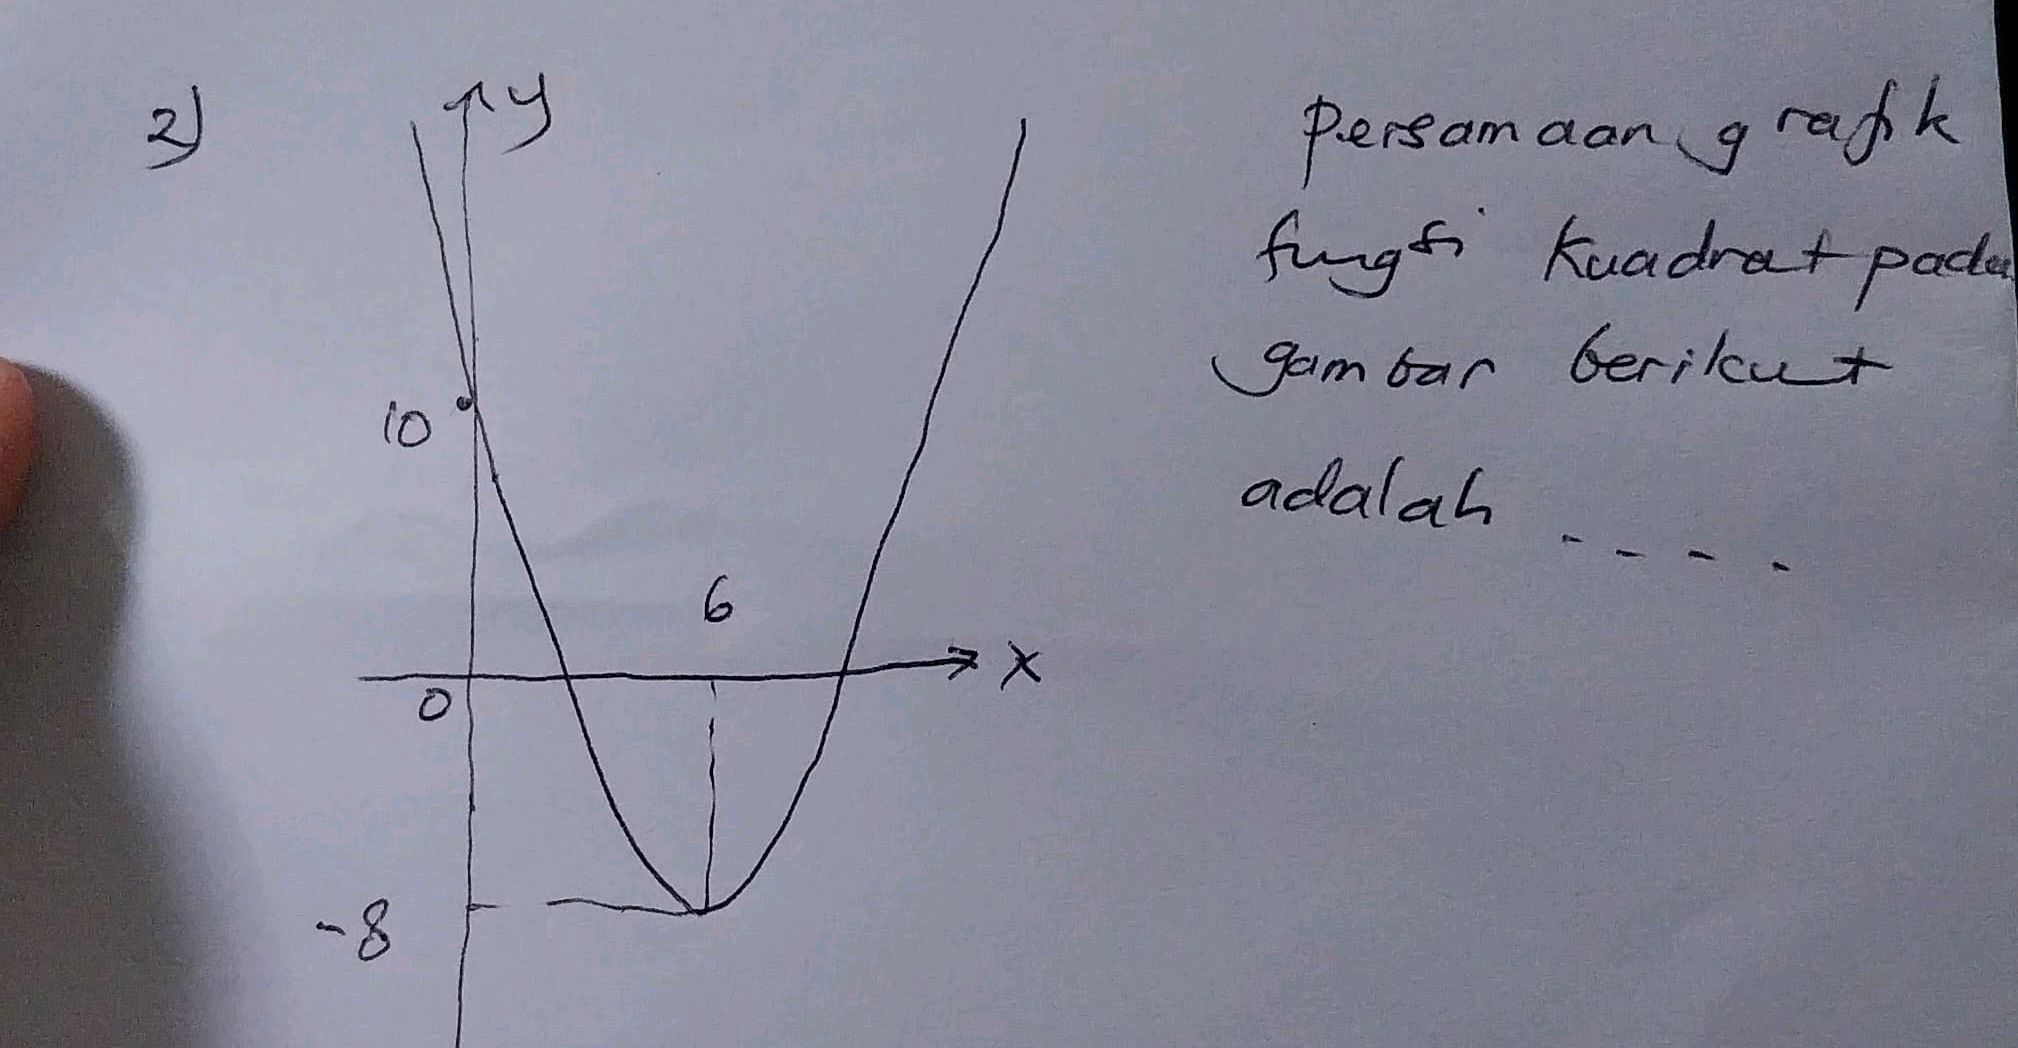 2)
y
10
6
0
X
-8
Persamaan grafik
fungsi Kuadrat pada
gambar berikut
adalah ....